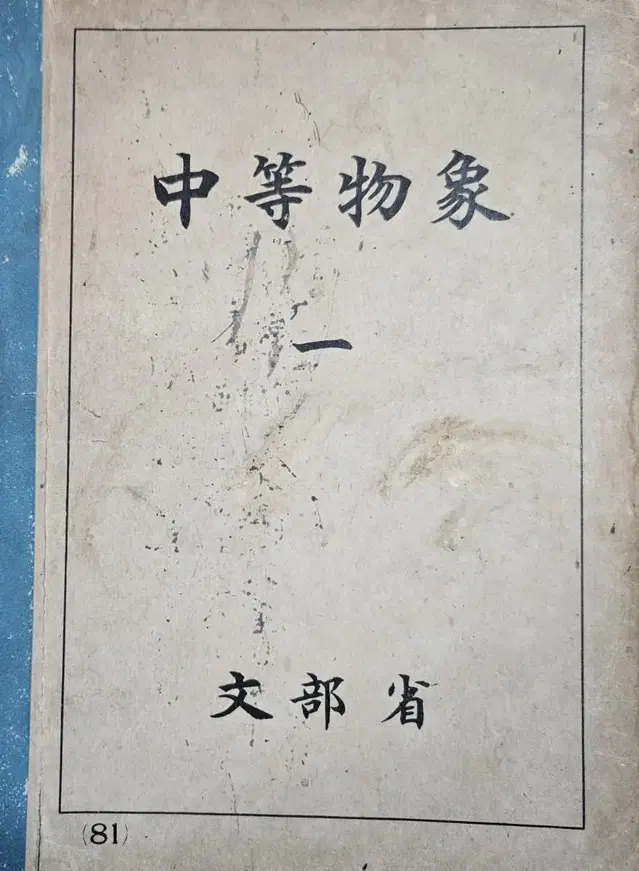 中等物象
一
文部省
(81)